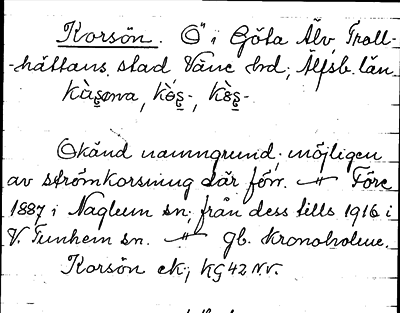 Korsön. Ö i Göta Älv, Troll-
-hättans stad Väne hd; Älfsb. län
Okänd namngrund; möjligen
av strömkorsning där förr. –"– Före
1887 i Naglum sn; från dess tills 1916 i
V. Tunhem sn. –"– gb. Kronoholme.
Korsön ek; KG 42 NV.